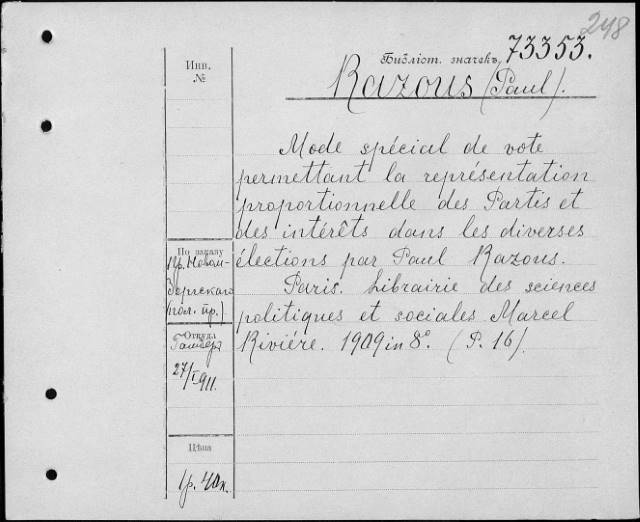 248
Библіот. значекъ 73353.
Razous (Paul).
Инв.
№
Mode spécial de vote
permettant la représentation
proportionnelle des Partis et
des intérêts dans les diverses
élections par Paul Razous.
Paris. Librairie des sciences
politiques et sociales Marcel
Rivière. 1909 in 8°. (P. 16).
По заказу
пр. Новом-
бергскаго
(пол. пр.)
Откуда
27/I 911.
Цѣна
1р. 40к.